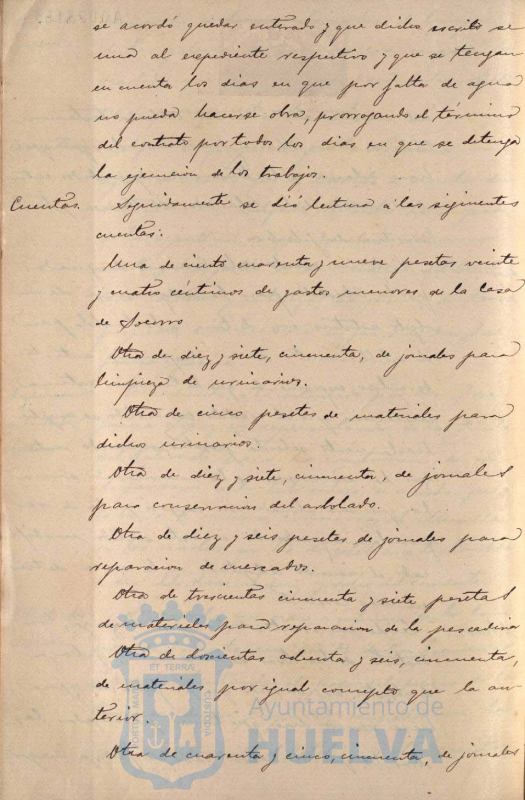 se acordó quedar enterado y que dicho escrito se
una al expediente respectivo y que se tengan
en cuenta los dias en que por falta de agua
no pueda hacerse obra, prorrogando el término
del contrato por todos los dias en que se detenga
la ejecucion de los trabajos.
Cuentas. Seguidamente se dió lectura á las siguientes
cuentas:
Una de ciento cuarenta y nueve pesetas veinte
y cuatro céntimos de gastos menores de la Casa
de Socorro
Otra de diez y siete, cincuenta, de jornales para
limpieza de urinarios.
Otra de cinco pesetas de materiales para
dichos urinarios.
Otra de diez y siete, cincuenta, de jornales
para conservacion del arbolado.
Otra de diez y seis pesetas de jornales para
reparacion de mercados.
Otra de trescientas cincuenta y siete pesetas
de materiales para reparacion de la pescaderia
Otra de doscientas ochenta y seis, cincuenta,
de materiales, por igual concepto que la an-
terior.
Otra de cuarenta y cinco, cincuenta, de jornales
ET TERRAE
PORTUS MARIS
CUSTODIA
Ayuntamiento de
HUELVA